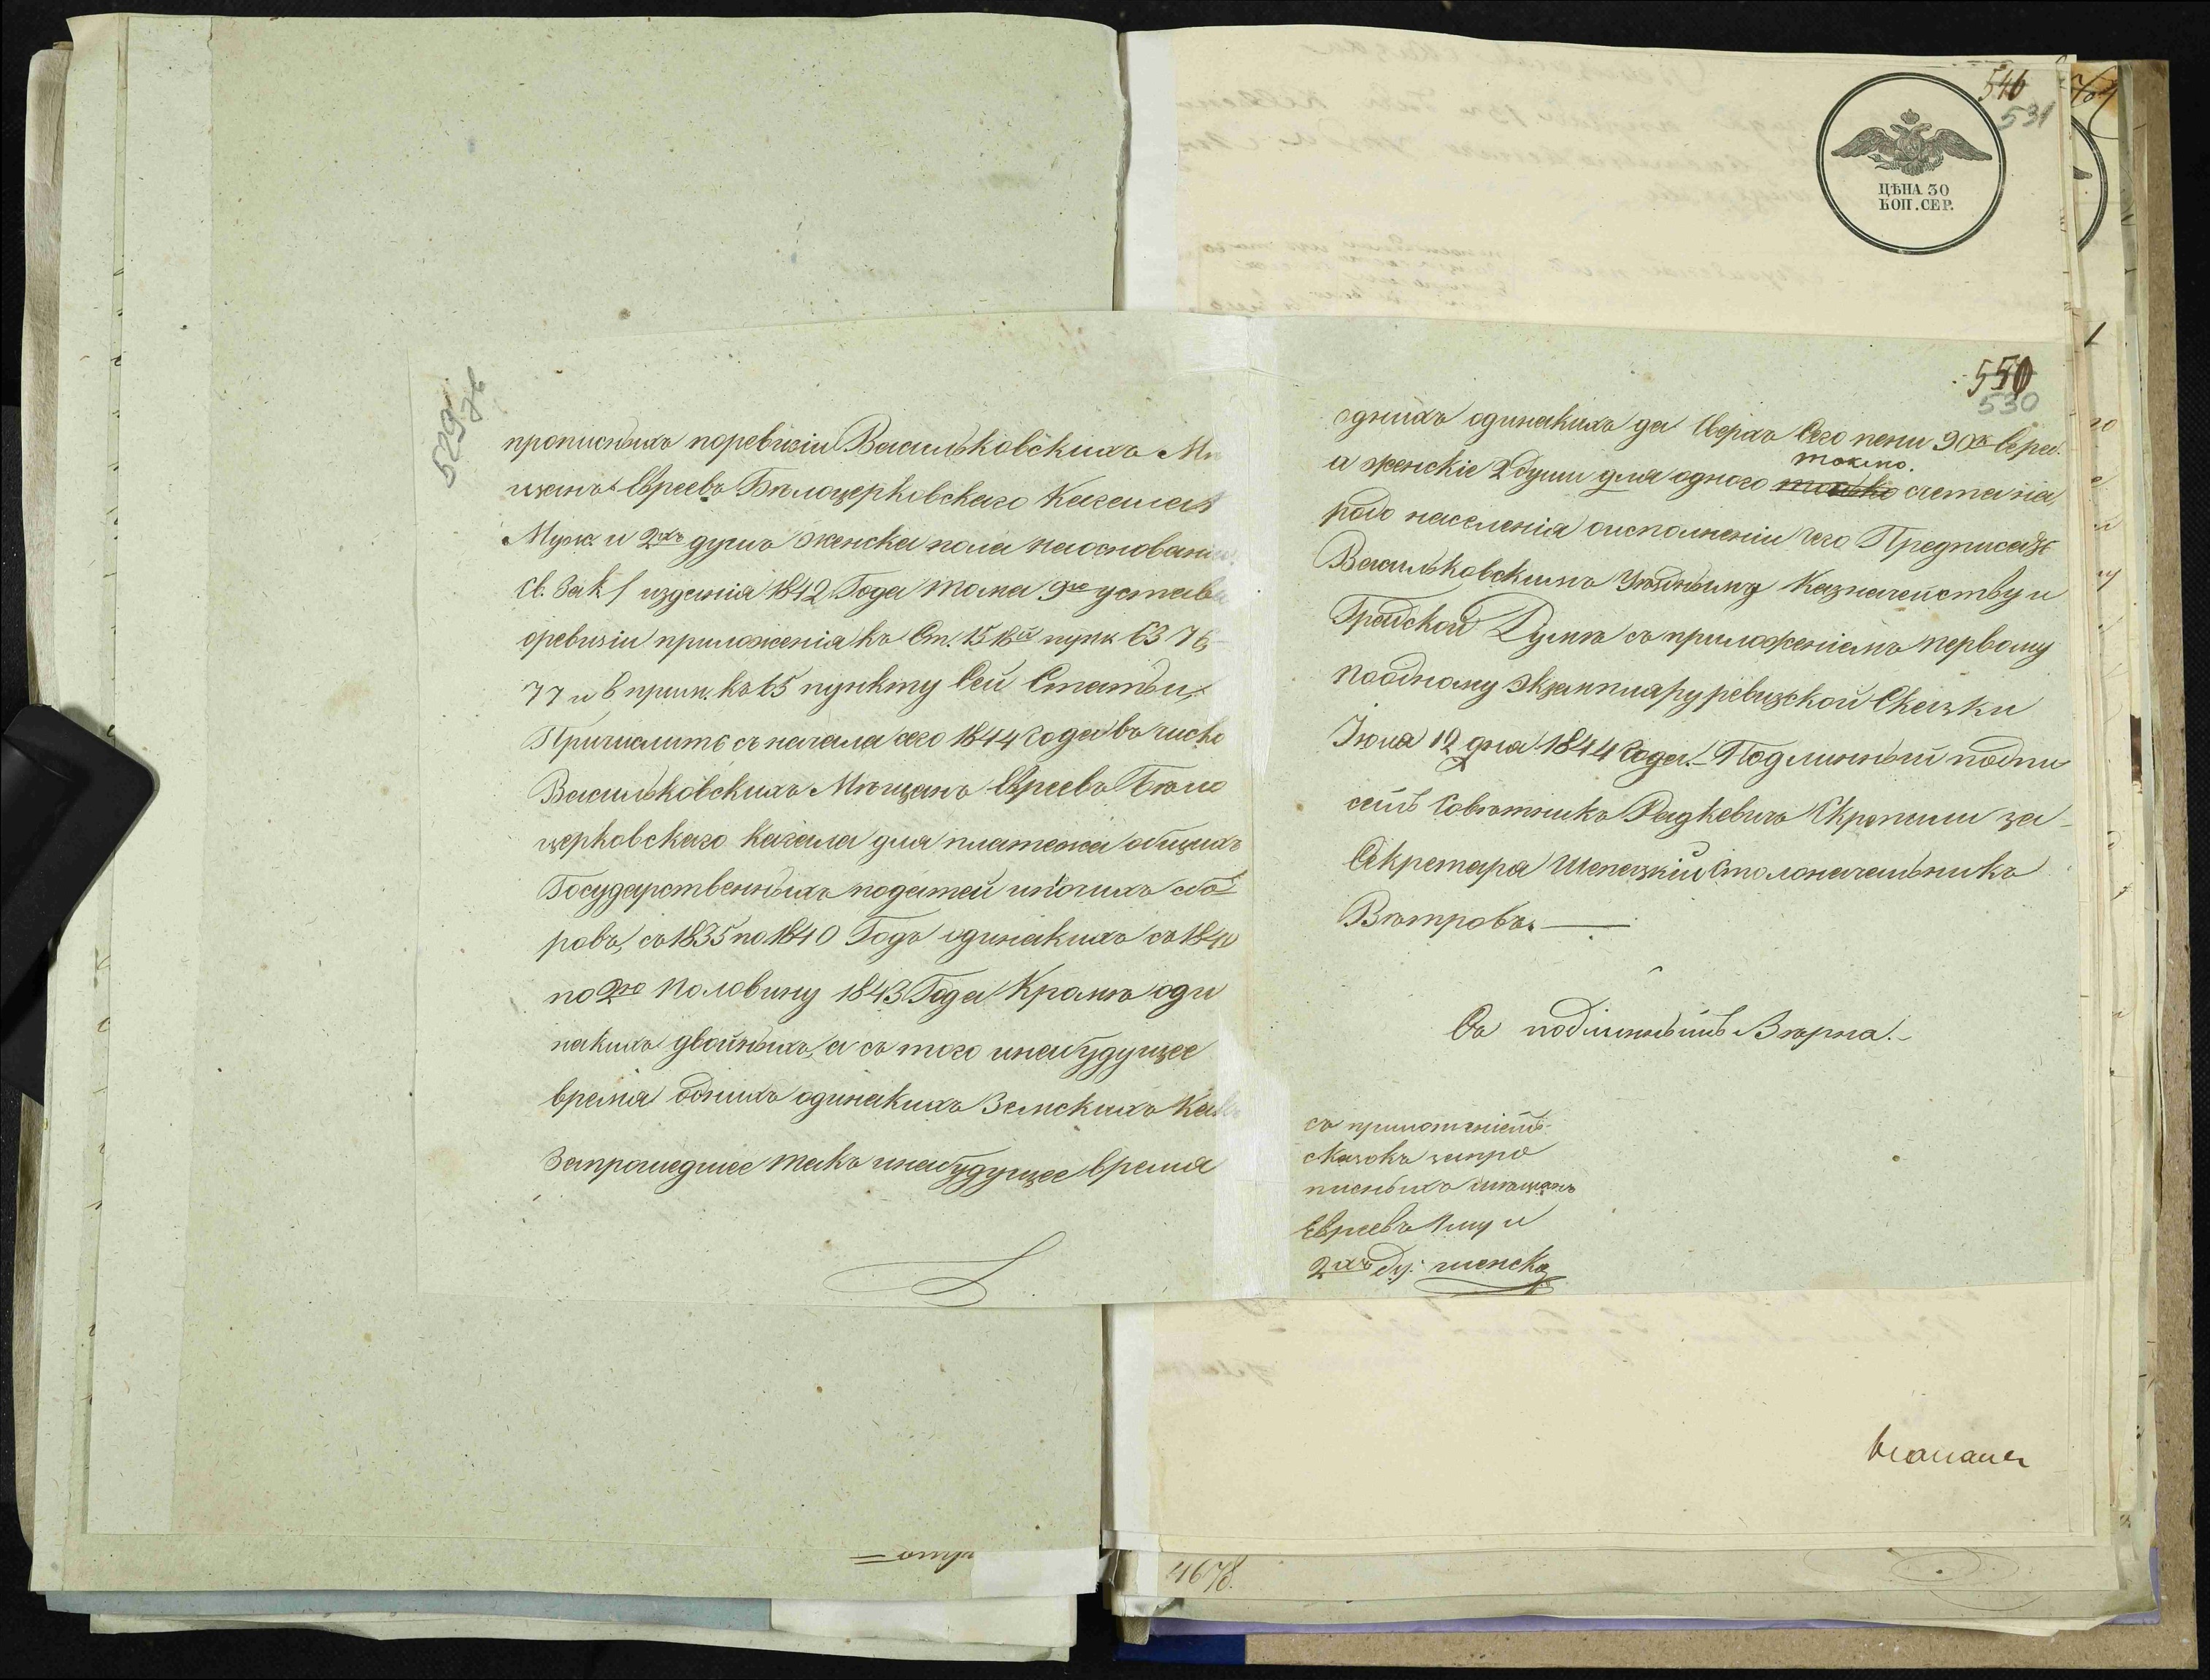 529 зв
прописныхъ поревизіи Васильковскихъ Мѣ
щанъ Евреевъ Бѣлоцерковскаго Кагала 1
Муж. и 2хъ душъ женска пола наосновании
Св. Зак. изданія 1842 Года тома 9го устава
оревизіи приложенія къ Ст. 15 пунк 63 76
77 и в прим. къ 65 пункту сей Статьи,
Причислить съ начала сего 1844 года въ число
Васильковскихъ Мѣщанъ Евреевъ Бѣло
церковскаго Кагала для платежа общихъ
Государственныхъ податей ипрочихъ сбо
ровъ, съ 1835 по 1840 Годъ одинакихъ съ 1840
по 2ю половину 1843 Года Кромѣ оди
накихъ двойныхъ, а съ того инабудущее
время однихъ одинакихъ Земскихъ Какъ
Запрошедшее такъ инабудущее время
отпр
546
531
ЦѢНА 30
КОП. СЕР.
550
530
однихъ одинакихъ да Сверхъ Сего пени 90 к. сереб.
токмо.
а женскіе 2 души для одного счета на,
родо населенія оисполненіи чего Предписать
Васильковскимъ Уѣздному Казначейству и
Градской Думѣ съ приложеніемъ первому
поодному экземпляру ревизской Сказки
Іюня 12 дня 1844 года. Подлинный подпи
салъ Совѣтникъ Радкевичъ Скрепили за
Секретаря Столоначальникъ
Вѣтровъ.
Съ подлиннымъ Вѣрна.
съ приложеніемъ
сказокъ запро
писныхъ мѣщанъ
Евреевъ 1 му и
2хъ Ду: женска
4678.